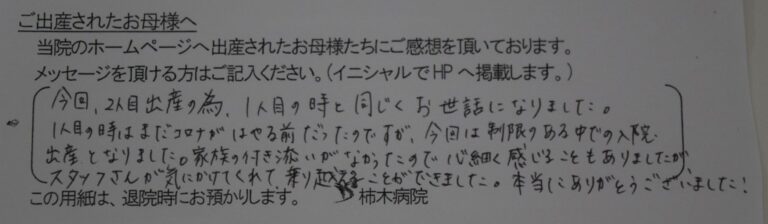 ご出産されたお母様へ
当院のホームページへ出産されたお母様たちにご感想を頂いております。
メッセージを頂ける方はご記入ください。(イニシャルでHPへ掲載します。)
今回、2人目出産の為、1人目の時と同じくお世話になりました。
1人目の時はまだコロナがはやる前だったのですが、今回は制限のある中での入院、
出産となりました。家族の付き添いがなかったので心細く感じることもありましたが
スタッフさんが気にかけてくれて、乗り越えることができました。本当にありがとうございました!
この用紙は、退院時にお預かりします。 柿木病院